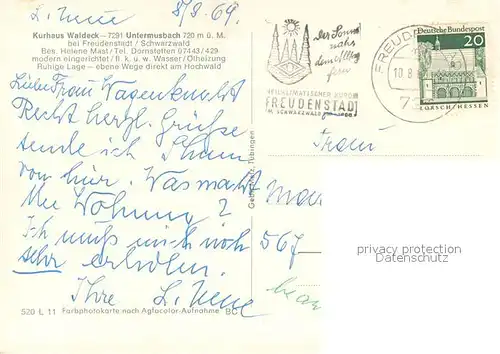 L. Neue 8/8.69.
Kurhaus Waldeck – 7291 Untermusbach 720 m ü. M.
bei Freudenstadt / Schwarzwald
Bes. Helene Mast / Tel. Dornstetten 07443/429
modern eingerichtet / fl. k. u. w. Wasser / Ölheizung
Ruhige Lage – ebene Wege direkt am Hochwald
Liebe Frau Wagenknecht
Recht herzl. Grüße
sende ich Ihnen
von hier. Was macht
Ihre Wohnung?
Ich muß mich noch
sehr erholen.
Ihre L. Neue
520 L 11 Farbphotokarte nach Agfacolor-Aufnahme BC
Gebr. Tübingen
Der Sonne
nahs
dem alltag
fern
HEILKLIMATISCHER KURORT
FREUDENSTADT
IM SCHWARZWALD
FREUDEN
10.8.
Deutsche Bundespost
20
LORSCH/HESSEN
Frau
567
privacy protection
Datenschutz